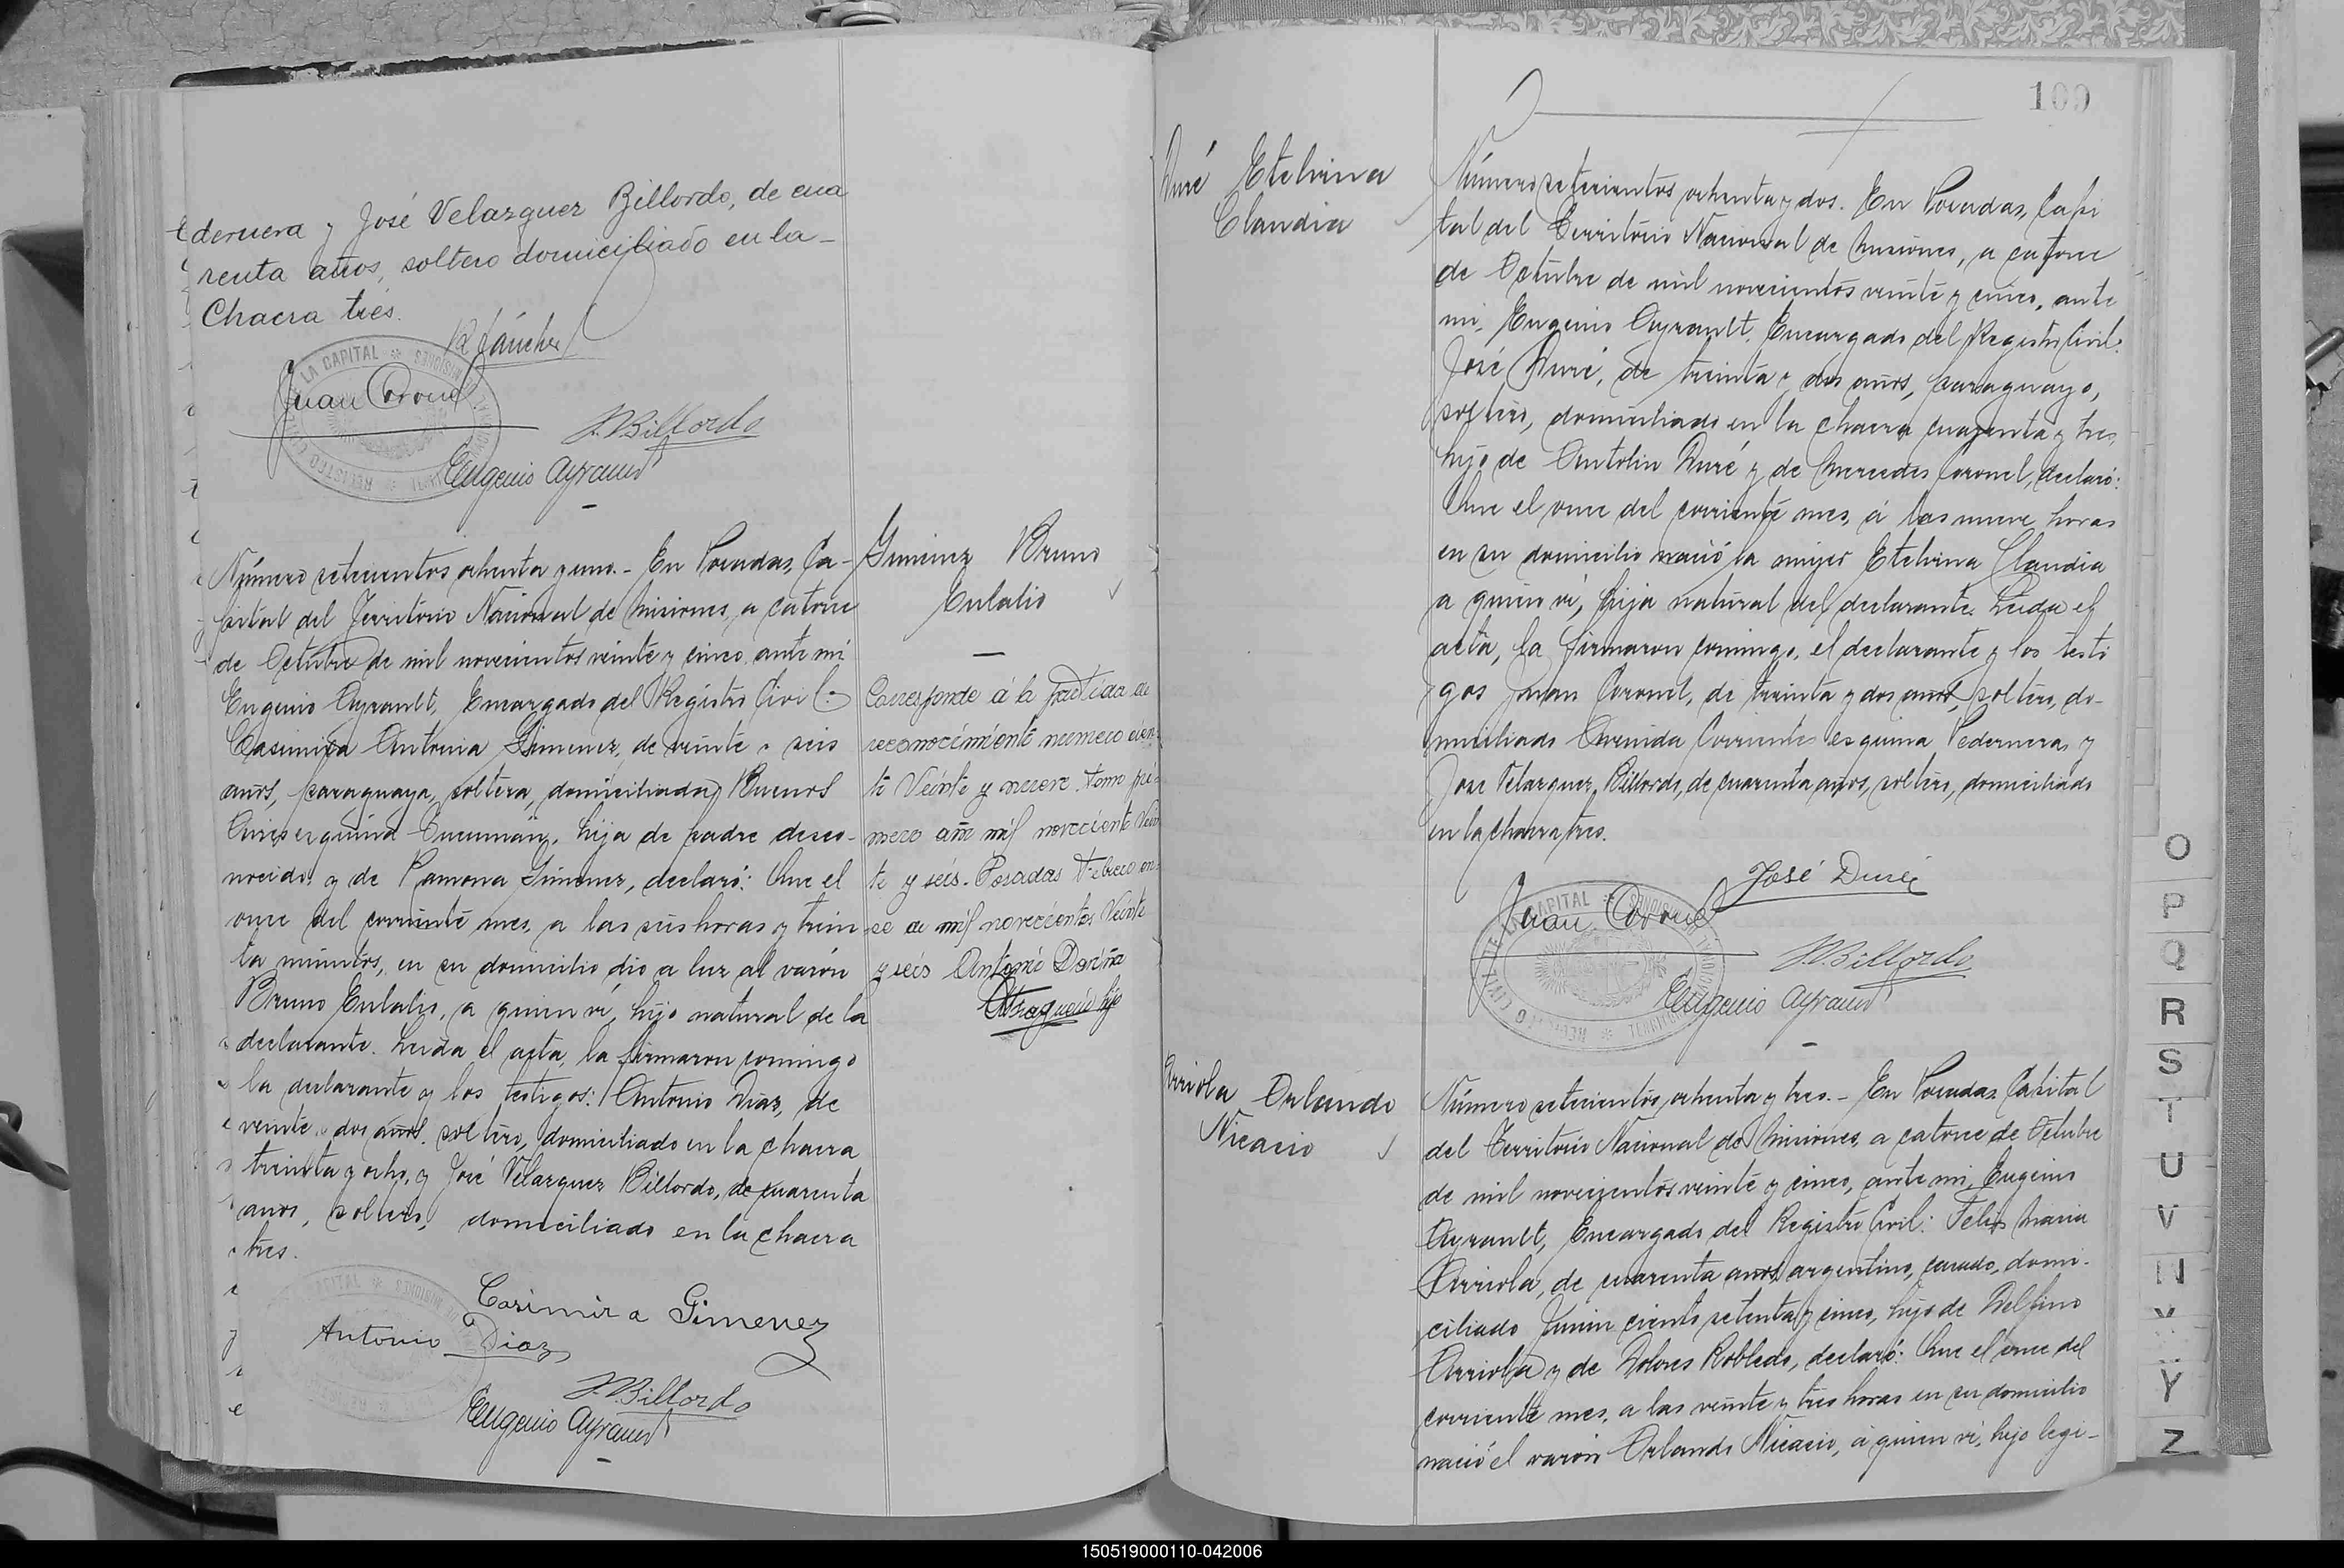 dernera y José Velazquez Billordo, de cua
renta años, soltero domiciliado en la
Chacra tres.
R Sánchez
Juan Coronel
J. V. Billordo
Eugenio Ayrault
Número setecientos ochenta y uno. - En Posadas, Ca-
pital del Territorio Nacional de Misiones, a catorce
de Octubre de mil novecientos veinte y cinco, ante mi
Eugenio Ayrault, Encargado del Registro Civil:
Casimira Antonia Gimenez, de veinte y seis
años, paraguaya, soltera, domiciliada Buenos
Aires esquina Tucumán, hija de padre desco-
nocido y de Ramona Gimenez, declaró: Que el
once del corriente mes, a las seis horas y trein
ta minutos, en su domicilio dio a luz al varón
Bruno Eulalio, a quien ví, hijo natural de la
declarante. Leida el acta, la firmaron conmigo
la declarante y los testigos: Antonio Diaz, de
veinte y dos años, soltero, domiciliado en la chacra
treinta y ocho, y José Velazquez Billordo, de cuarenta
anos, soltero, domiciliado en la chacra
tres.
Casimira Gimenez
Antonio Diaz
J. V. Billordo
Eugenio Ayrault
Gimenez Bruno
Eulalio
Corresponde á la partida de
reconocimiento numero cien-
to Veinte y nueve tomo pri-
mero año mil novecientos Vein
te y seis. Posadas Febrero on-
ce de mil novecientos Veinte
y seis Antonio
109
Duré Etelvina
Claudia
Número setecientos ochenta y dos. En Posadas, Capi
tal del Territorio Nacional de Misiones, a catorce
de Octubre de mil novecientos veinte y cinco, ante
mi, Eugenio Ayrault, Encargado del Registro Civil:
José Duré, de treinta y dos años, paraguayo,
soltero, domiciliado en la chacra cuarenta y tres,
hijo de Antolin Duré y de Mercedes Coronel, declaró:
Que el once del corriente mes, á las nueve horas
en su domicilio nació la mujer Etelvina Claudia
a quien ví, hija natural del declarante. Leida el
acta, la firmaron conmigo, el declarante y los testi
gos Juan Coronel, de treinta y dos años, soltero, do-
miciliado Avenida Corrientes esquina Pedernera y
Jose Velazquez Billordo, de cuarenta años, soltero, domiciliado
en la chacra tres.
José Duré
Juan Coronel
J. V. Billordo
Eugenio Ayrault
Arriola Orlando
Nicasio
Número setecientos ochenta y tres. - En Posadas Capital
del Territorio Nacional de Misiones, a catorce de Octubre
de mil novecientos veinte y cinco, ante mi, Eugenio
Ayrault, Encargado del Registro Civil: Felix Maria
Arriola, de cuarenta anos, argentino, casado, domi-
ciliado Junin ciento setenta y cinco, hijo de Delfino
Arriola y de Dolores Robledo, declaró: Que el once del
corriente mes, a las veinte y tres horas en su domicilio
nació el varón Orlando Nicasio, á quien ví, hijo legi-
O
P
Q
R
S
T
U
V
Y
Z
150519000110-042006